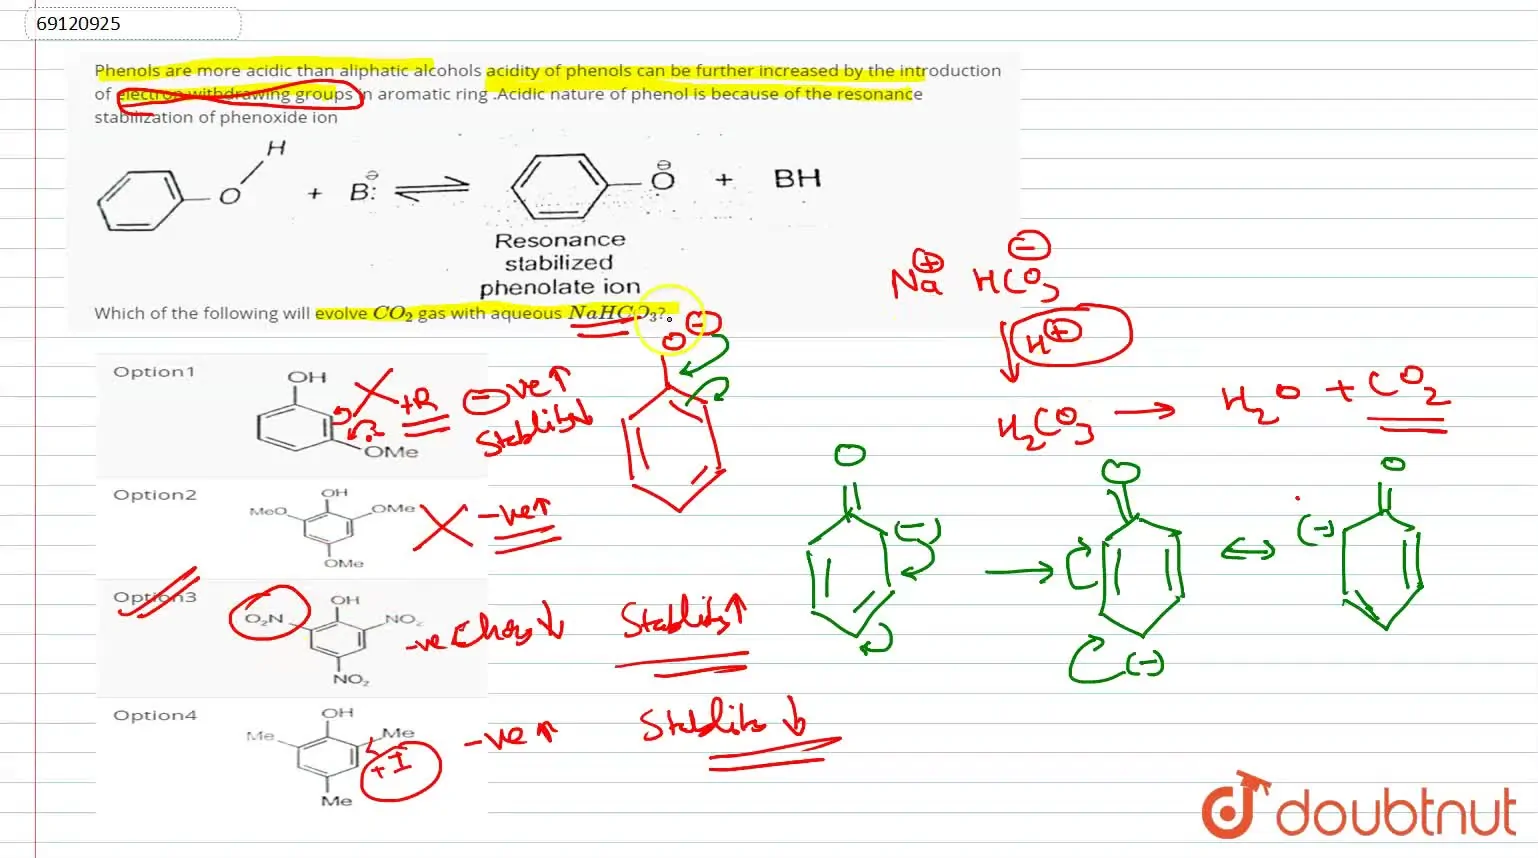 69120925
Phenols are more acidic than aliphatic alcohols acidity of phenols can be further increased by the introduction
of electron withdrawing groups in aromatic ring .Acidic nature of phenol is because of the resonance
stabilization of phenoxide ion
H
O
+ B:⊖ ⇌
O⊖ + BH
Resonance
stabilized
phenolate ion
Which of the following will evolve CO₂ gas with aqueous NaHCO₃?
Na⊕ HCO₃⊖
H⊕
H₂CO₃ → H₂O + CO₂
O⊖
Option1
OH
OMe
+R
⊖ve↑
Stability↓
Option2
OH
MeO
OMe
OMe
-ve↑
Option3
OH
O₂N
NO₂
NO₂
-ve Charge↓
Stability↑
Option4
OH
Me
Me
Me
+I
-ve↑
Stability↓
O
(-)
→
O
(-)
↔
O
(-)
doubtnut